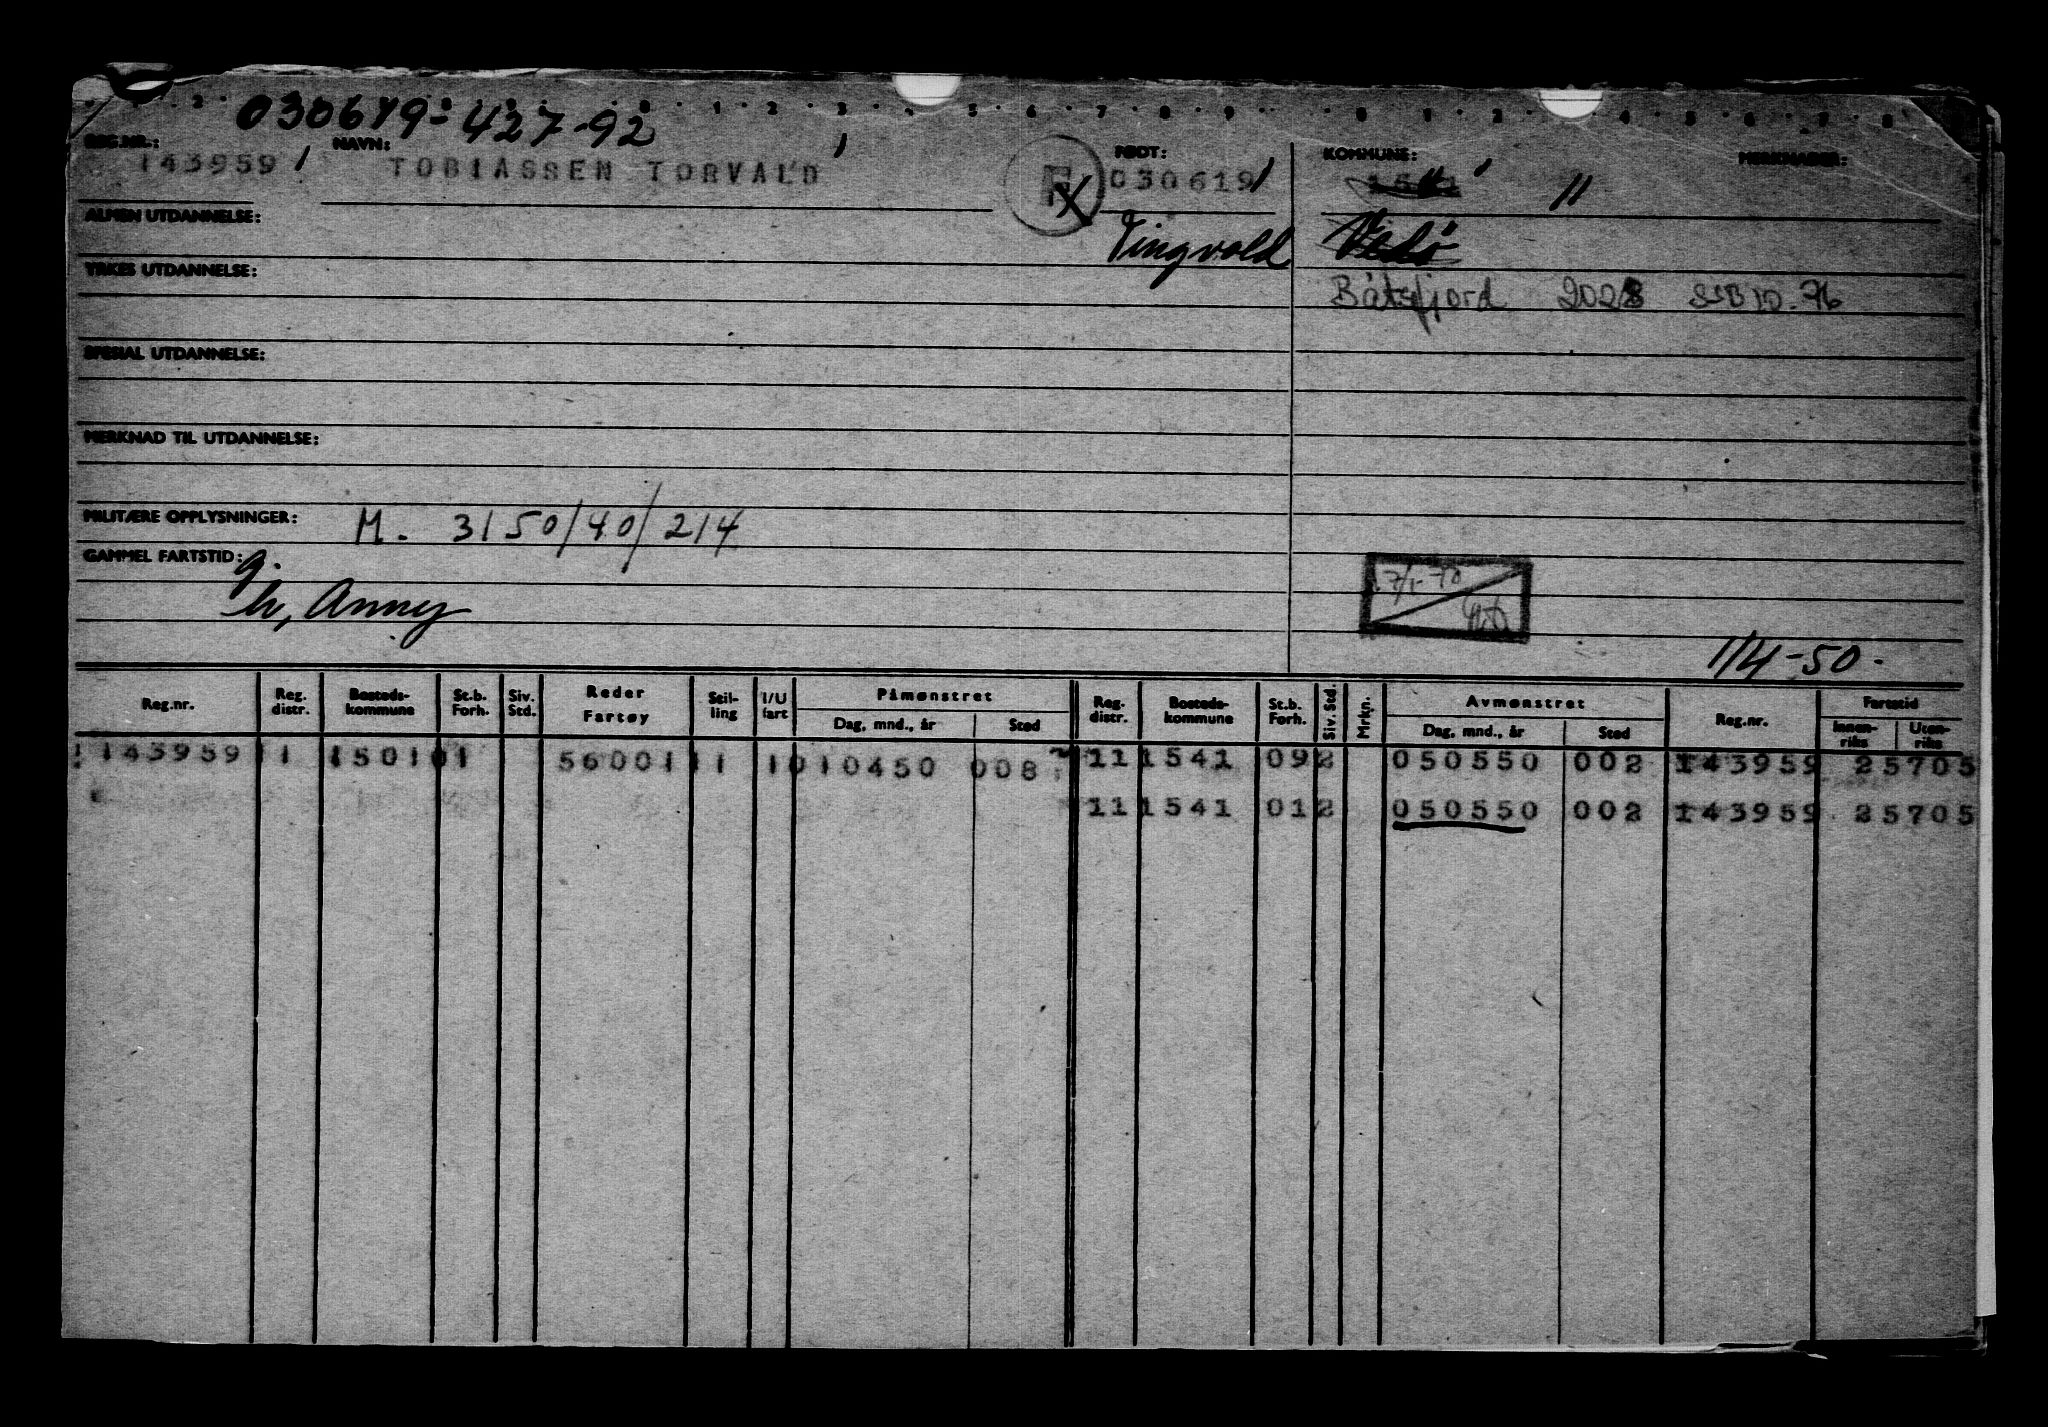 030619-42792
REG.NR.: NAVN: FØDT: KOMMUNE: MERKNADER:
143959 TOBIASSEN TORVALD F 030619 1541
ALMEN UTDANNELSE:
Tingvold Vedø
YRKES UTDANNELSE:
Båtsfjord 2028 SSB 10.76
SPESIAL UTDANNELSE:
MERKNAD TIL UTDANNELSE:
MILITÆRE OPPLYSNINGER: M. 3150/40/214
GAMMEL FARTSTID: g.
h, Anny
17/1-70
1/4-50.
Reg.nr. Reg. distr. Bosteds-kommune St.b. Forh. Siv. Std. Reder Fartøy Stil-ling I/U fart Påmønstret Dag, mnd., år Sted Reg. distr. Bosteds-kommune St.b. Forh. Siv. Std. Mrkn. Avmønstret Dag, mnd., år Sted Reg.nr. Fartstid Innen-riks Uten-riks
143959 11 1501 01 56001 11 1 010450 008 11 1541 09 2 050550 002 143959 25705
11 1541 01 2 050550 002 143959 25705